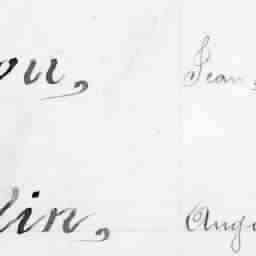 ou, Jean,
lin, Augu